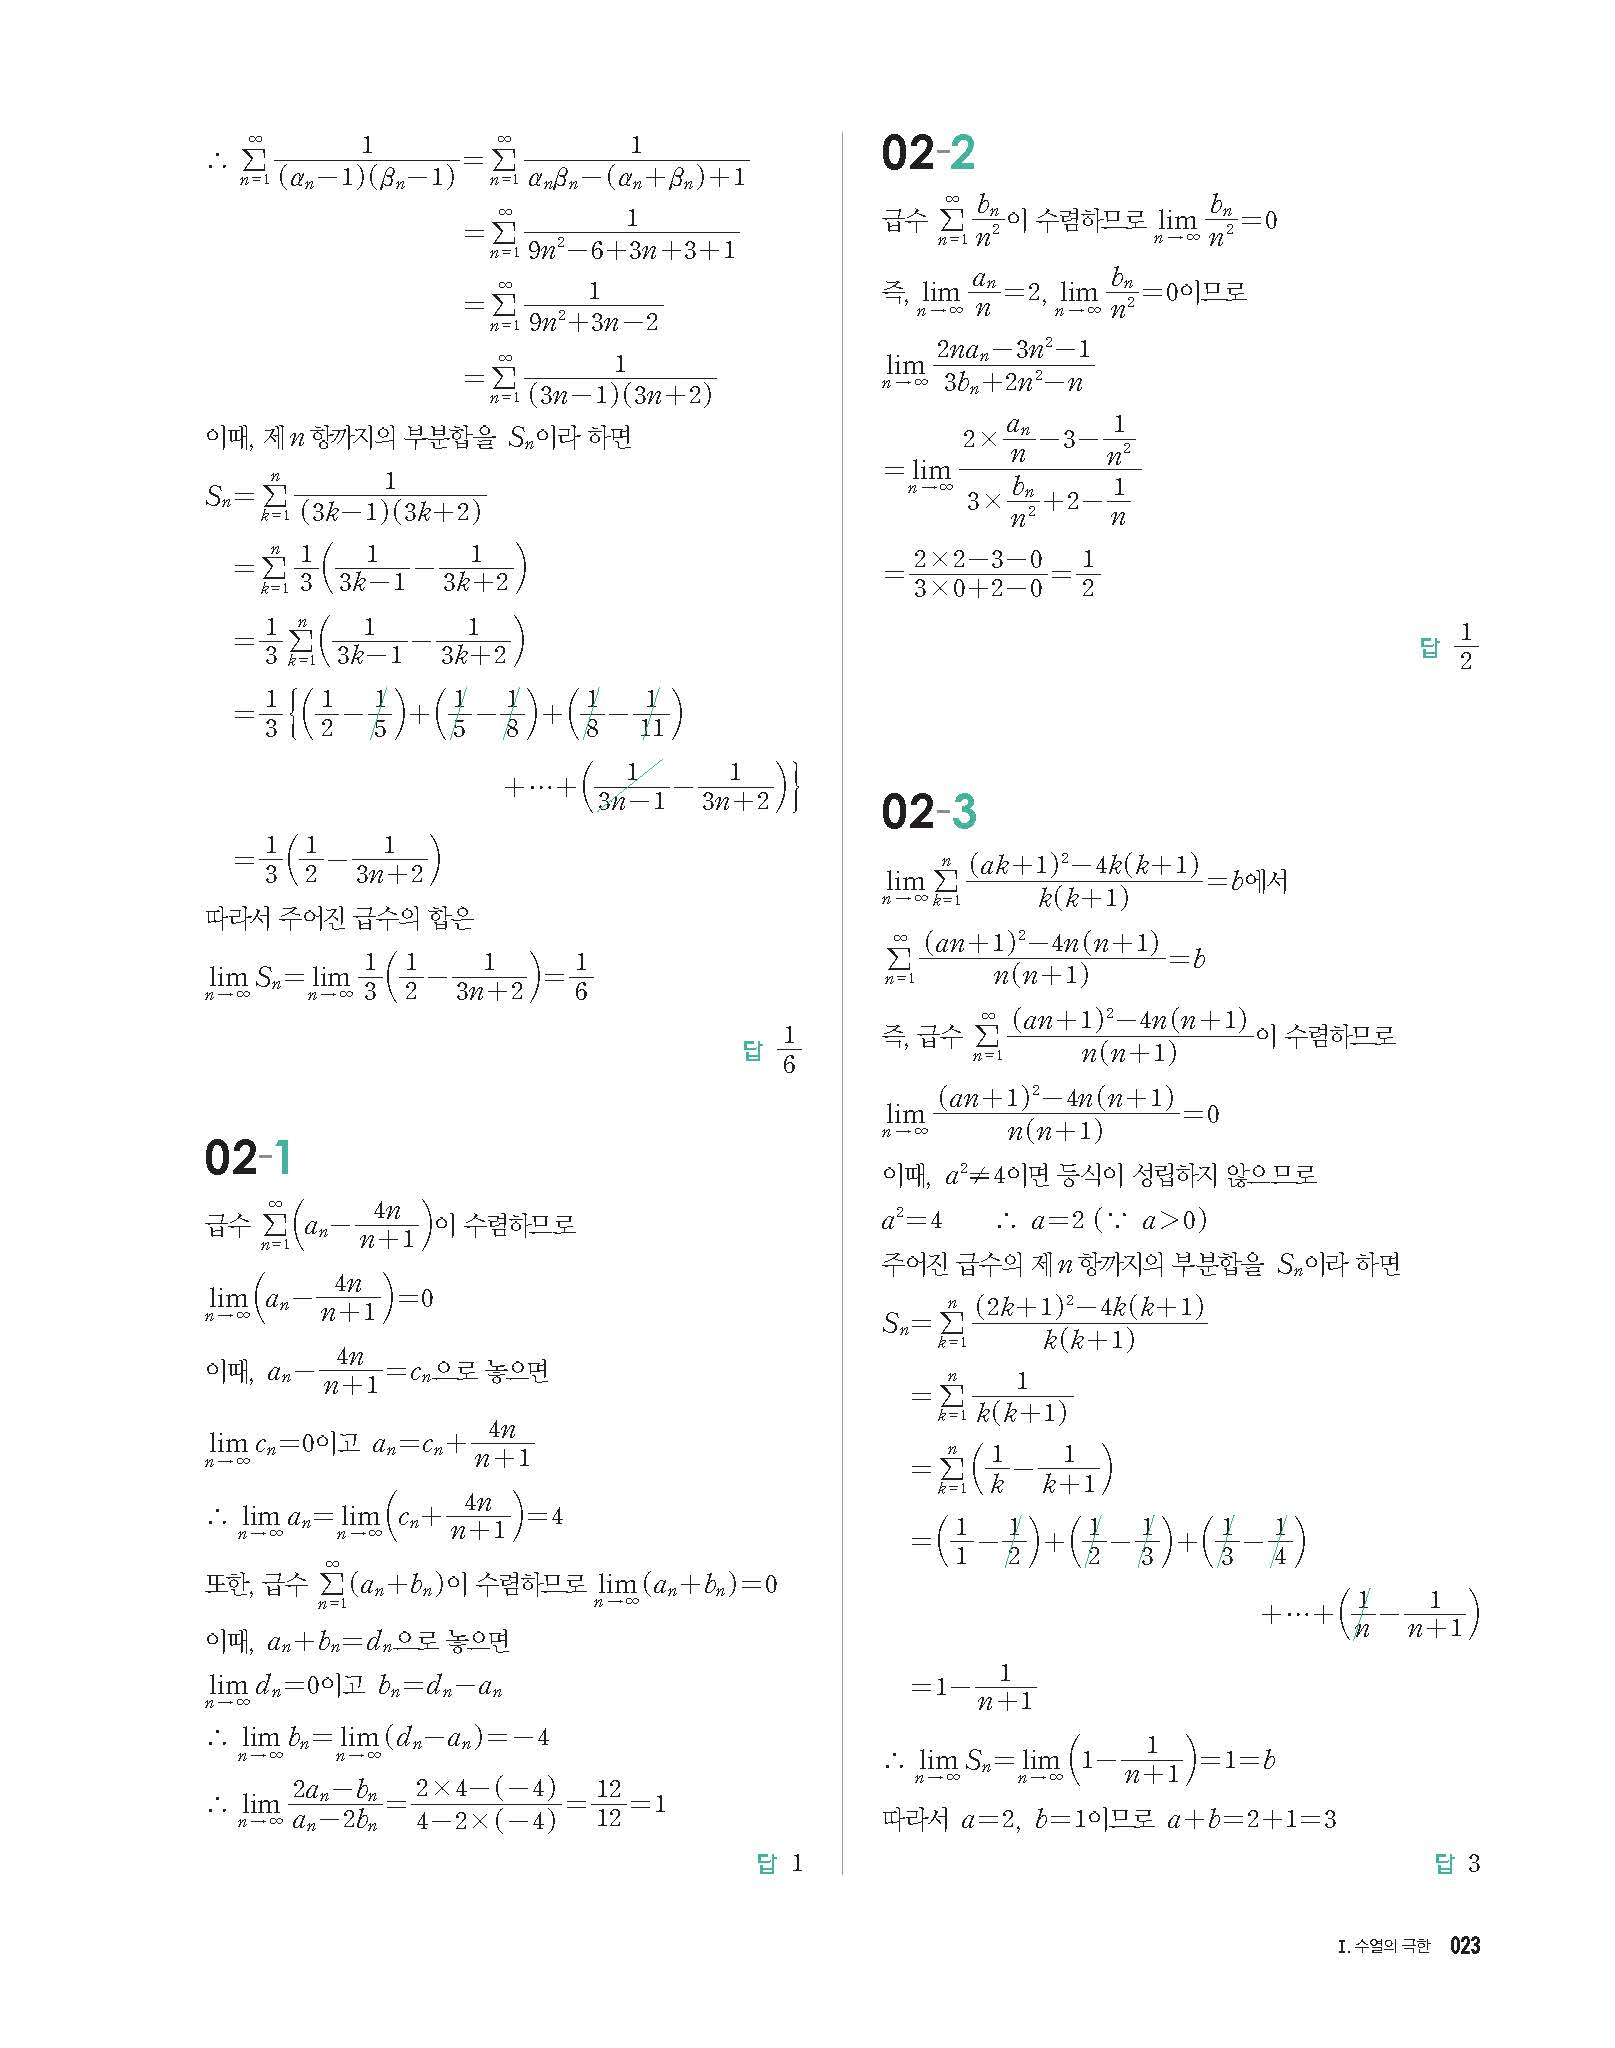 ∴ $\sum_{n=1}^{\infty}\frac{1}{(\alpha_n-1)(\beta_n-1)}=\sum_{n=1}^{\infty}\frac{1}{\alpha_n\beta_n-(\alpha_n+\beta_n)+1}$
$=\sum_{n=1}^{\infty}\frac{1}{9n^2-6+3n+3+1}$
$=\sum_{n=1}^{\infty}\frac{1}{9n^2+3n-2}$
$=\sum_{n=1}^{\infty}\frac{1}{(3n-1)(3n+2)}$
이때, 제$n$항까지의 부분합을 $S_n$이라 하면
$S_n=\sum_{k=1}^{n}\frac{1}{(3k-1)(3k+2)}$
$=\sum_{k=1}^{n}\frac{1}{3}\left(\frac{1}{3k-1}-\frac{1}{3k+2}\right)$
$=\frac{1}{3}\sum_{k=1}^{n}\left(\frac{1}{3k-1}-\frac{1}{3k+2}\right)$
$=\frac{1}{3}\left\{\left(\frac{1}{2}-\frac{1}{5}\right)+\left(\frac{1}{5}-\frac{1}{8}\right)+\left(\frac{1}{8}-\frac{1}{11}\right)\right.$
$\left.+\cdots+\left(\frac{1}{3n-1}-\frac{1}{3n+2}\right)\right\}$
$=\frac{1}{3}\left(\frac{1}{2}-\frac{1}{3n+2}\right)$
따라서 주어진 급수의 합은
$\lim_{n\to\infty}S_n=\lim_{n\to\infty}\frac{1}{3}\left(\frac{1}{2}-\frac{1}{3n+2}\right)=\frac{1}{6}$
답 $\frac{1}{6}$
02-1
급수 $\sum_{n=1}^{\infty}\left(a_n-\frac{4n}{n+1}\right)$이 수렴하므로
$\lim_{n\to\infty}\left(a_n-\frac{4n}{n+1}\right)=0$
이때, $a_n-\frac{4n}{n+1}=c_n$으로 놓으면
$\lim_{n\to\infty}c_n=0$이고 $a_n=c_n+\frac{4n}{n+1}$
∴ $\lim_{n\to\infty}a_n=\lim_{n\to\infty}\left(c_n+\frac{4n}{n+1}\right)=4$
또한, 급수 $\sum_{n=1}^{\infty}(a_n+b_n)$이 수렴하므로 $\lim_{n\to\infty}(a_n+b_n)=0$
이때, $a_n+b_n=d_n$으로 놓으면
$\lim_{n\to\infty}d_n=0$이고 $b_n=d_n-a_n$
∴ $\lim_{n\to\infty}b_n=\lim_{n\to\infty}(d_n-a_n)=-4$
∴ $\lim_{n\to\infty}\frac{2a_n-b_n}{a_n-2b_n}=\frac{2\times4-(-4)}{4-2\times(-4)}=\frac{12}{12}=1$
답 1
02-2
급수 $\sum_{n=1}^{\infty}\frac{b_n}{n^2}$이 수렴하므로 $\lim_{n\to\infty}\frac{b_n}{n^2}=0$
즉, $\lim_{n\to\infty}\frac{a_n}{n}=2$, $\lim_{n\to\infty}\frac{b_n}{n^2}=0$이므로
$\lim_{n\to\infty}\frac{2na_n-3n^2-1}{3b_n+2n^2-n}$
$=\lim_{n\to\infty}\frac{2\times\frac{a_n}{n}-3-\frac{1}{n^2}}{3\times\frac{b_n}{n^2}+2-\frac{1}{n}}$
$=\frac{2\times2-3-0}{3\times0+2-0}=\frac{1}{2}$
답 $\frac{1}{2}$
02-3
$\lim_{n\to\infty}\sum_{k=1}^{n}\frac{(ak+1)^2-4k(k+1)}{k(k+1)}=b$에서
$\sum_{n=1}^{\infty}\frac{(an+1)^2-4n(n+1)}{n(n+1)}=b$
즉, 급수 $\sum_{n=1}^{\infty}\frac{(an+1)^2-4n(n+1)}{n(n+1)}$이 수렴하므로
$\lim_{n\to\infty}\frac{(an+1)^2-4n(n+1)}{n(n+1)}=0$
이때, $a^2\neq4$이면 등식이 성립하지 않으므로
$a^2=4$ ∴ $a=2$ (∵ $a>0$)
주어진 급수의 제$n$항까지의 부분합을 $S_n$이라 하면
$S_n=\sum_{k=1}^{n}\frac{(2k+1)^2-4k(k+1)}{k(k+1)}$
$=\sum_{k=1}^{n}\frac{1}{k(k+1)}$
$=\sum_{k=1}^{n}\left(\frac{1}{k}-\frac{1}{k+1}\right)$
$=\left(\frac{1}{1}-\frac{1}{2}\right)+\left(\frac{1}{2}-\frac{1}{3}\right)+\left(\frac{1}{3}-\frac{1}{4}\right)$
$+\cdots+\left(\frac{1}{n}-\frac{1}{n+1}\right)$
$=1-\frac{1}{n+1}$
∴ $\lim_{n\to\infty}S_n=\lim_{n\to\infty}\left(1-\frac{1}{n+1}\right)=1=b$
따라서 $a=2$, $b=1$이므로 $a+b=2+1=3$
답 3
I. 수열의 극한 023